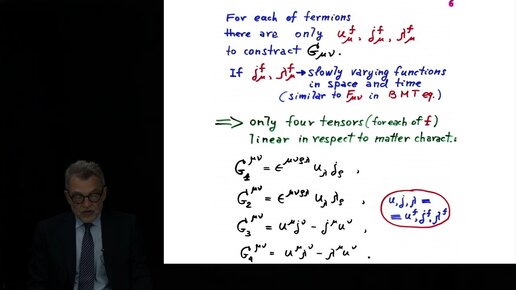 6
For each of fermions
there are only u_μ^f, j_μ^f, λ_μ^f
to constract G_μν.
If j_μ^f, λ_μ^f → slowly varying functions
in space and time
(similar to F_μν in BMT eq.)
⟹ only four tensors (for each of f)
linear in respect to matter charact.:
G_1^μν = ε^μνρλ u_λ j_ρ ,
G_2^μν = ε^μνρλ u_λ λ_ρ ,
G_3^μν = u^μ j^ν − j^μ u^ν ,
G_4^μν = u^μ λ^ν − λ^μ u^ν .
u, j, λ =
= u^f, j^f, λ^f